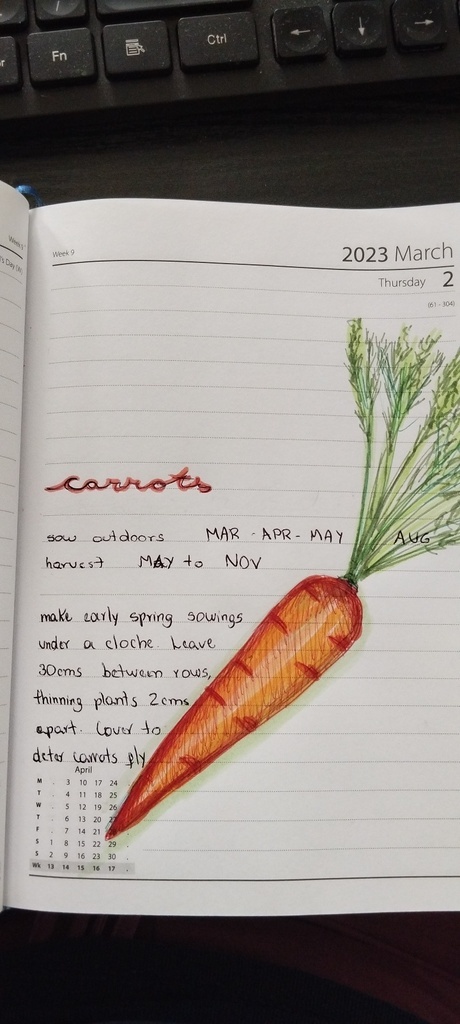 Fn
Ctrl
←
↓
→
Week 9
2023 March
Thursday 2
(61 - 304)
carrots
sow outdoors MAR - APR - MAY AUG
harvest MAY to NOV
make early spring sowings
under a cloche. Leave
30cms between rows,
thinning plants 2cms
apart. Cover to
deter carrots fly
April
M . 3 10 17 24
T . 4 11 18 25
W . 5 12 19 26
T . 6 13 20
F . 7 14 21
S 1 8 15 22 29
S 2 9 16 23 30 .
Wk 13 14 15 16 17 .